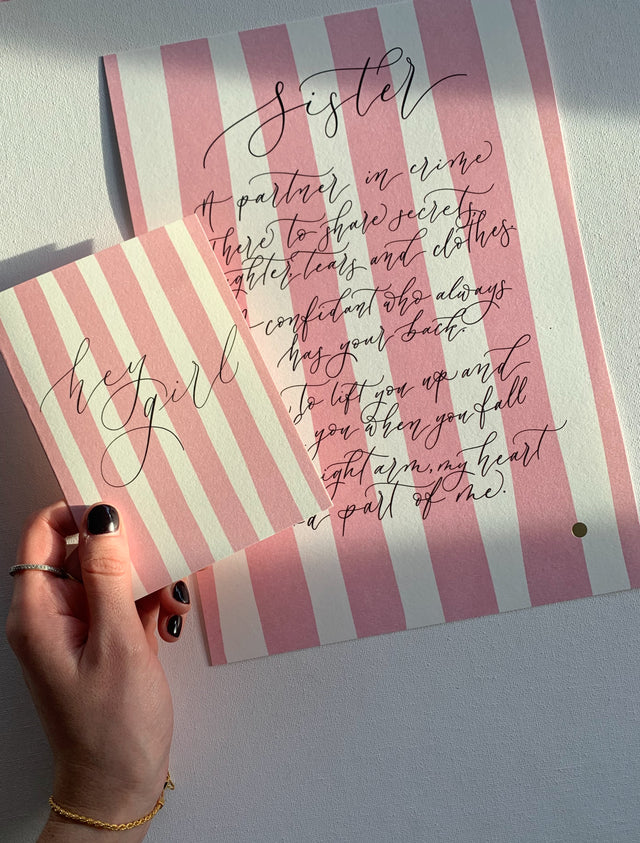 sister
A partner in crime
There to share secrets,
tears and clothes.
confidant who always
has your back.
to lift you up and
you when you fall
arm, my heart
a part of me.
hey
girl